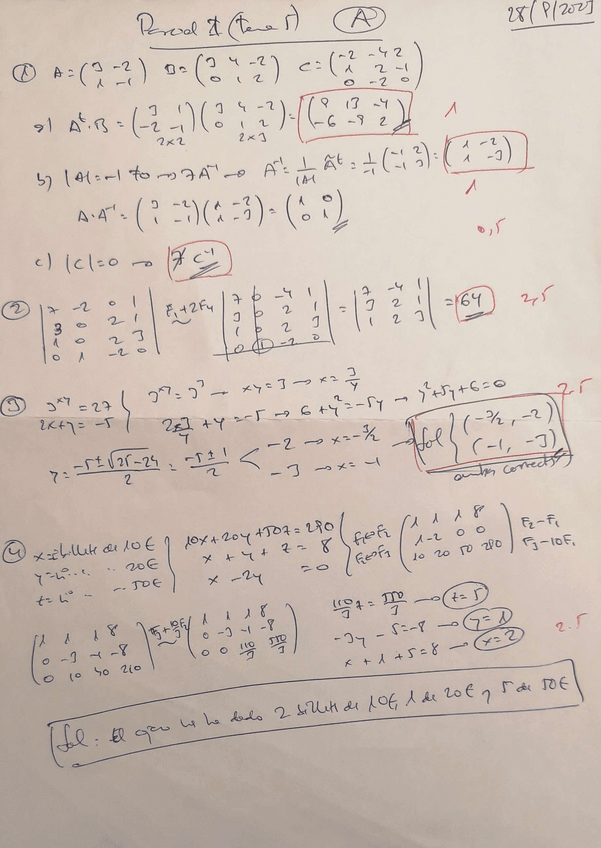 Parcial 2 (tema 5) A 28/P/2023
① A = (3 -2 / 1 -1) B = (3 4 -2 / 0 1 2) C = (-2 -4 2 / 1 2 -1 / 0 -2 0)
a) Aᵗ·B = (3 1 / -2 -1) (3 4 -2 / 0 1 2) = (9 13 -4 / -6 -9 2) 1
2x2 2x3
b) |A| = -1 ≠0 → ∃A⁻¹ → A⁻¹ = 1/|A| Ãᵗ = 1/-1 (-1 2 / -1 3) = (1 -2 / 1 -3) 1
A·A⁻¹ = (3 -2 / 1 -1) (1 -2 / 1 -3) = (1 0 / 0 1)
0,5
c) |C| = 0 → ∄ C⁻¹
② |7 -2 0 1 / 3 0 2 1 / 1 0 2 3 / 0 1 -2 0| F₁+2F₄ |7 0 -4 1 / 3 0 2 1 / 1 0 2 3 / 0 1 -2 0| = |7 -4 1 / 3 2 1 / 1 2 3| = 64 2,5
③ 3ˣʸ = 27 3ˣʸ = 3³ → xy = 3 → x = 3/y
2x+y = -5 2·3/y + y = -5 → 6 + y² = -5y → y²+5y+6=0 2.5
y = -5±√25-24 / 2 = -5±1 / 2 < -2 → x = -3/2 → Sol { (-3/2, -2)
-3 → x = -1 (-1, -3)
ambas correctas
④ x = billetes de 10€ 10x+20y+50z = 290 F₁↔F₂ (1 1 1 8 / 1 -2 0 0 / 10 20 50 290) F₂-F₁
y = nº " " 20€ x + y + z = 8 F₂↔F₃ F₃-10F₁
z = nº " " 50€ x - 2y = 0
(1 1 1 8 / 0 -3 -1 -8 / 0 10 40 210) F₃+10/3F₂ (1 1 1 8 / 0 -3 -1 -8 / 0 0 110/3 550/3) 110/3 z = 550/3 → z = 5
-3y - 5 = -8 → y = 1
x + 1 + 5 = 8 → x = 2 2.5
Sol: El cajero ha dado 2 billetes de 10€, 1 de 20€ y 5 de 50€